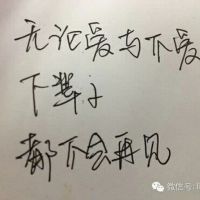 无论爱与不爱
下辈子
都不会再见
微信号: